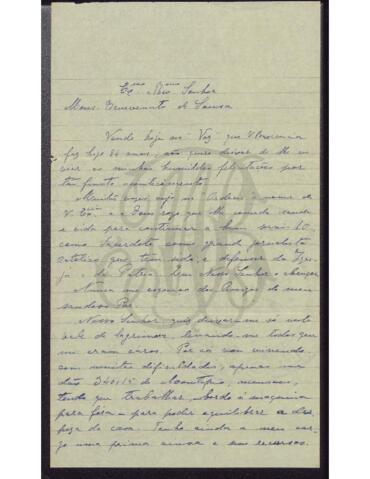 Exmo Revmo Senhor
Mons. Benevenuto de Sousa
Vendo hoje nas "Voz" que V. Reverencia
faz hoje 84 anos, não quero deixar de lhe en
viar as minhas humildes felicitações por
tão fausto acontecimento.
Muitas vezes vejo nas o nome de
V. Exa e a Deus rogo que lhe conceda saude
e vida para continuar a bem
como Sacerdote como grande jornalista
catolico que tem sido, e defensor da Igre-
ja e da Patria. Que Nosso Senhor o abençoe
Nunca me esqueço dos Amigos de meu
saudoso Pai.
Nosso Senhor quiz deixar-me só neste
vale de lagrimas, levando-me todos que
me eram caros. Por cá vou vivendo,
com muitas dificuldades, apenas me
dão 340$15 de Montepio, mensais,
tendo que trabalhar, bordo á maquina
para fóra - para poder equilibrar a des
peza da casa. Tenho ainda a meu car
go uma prima idosa e sem recursos.